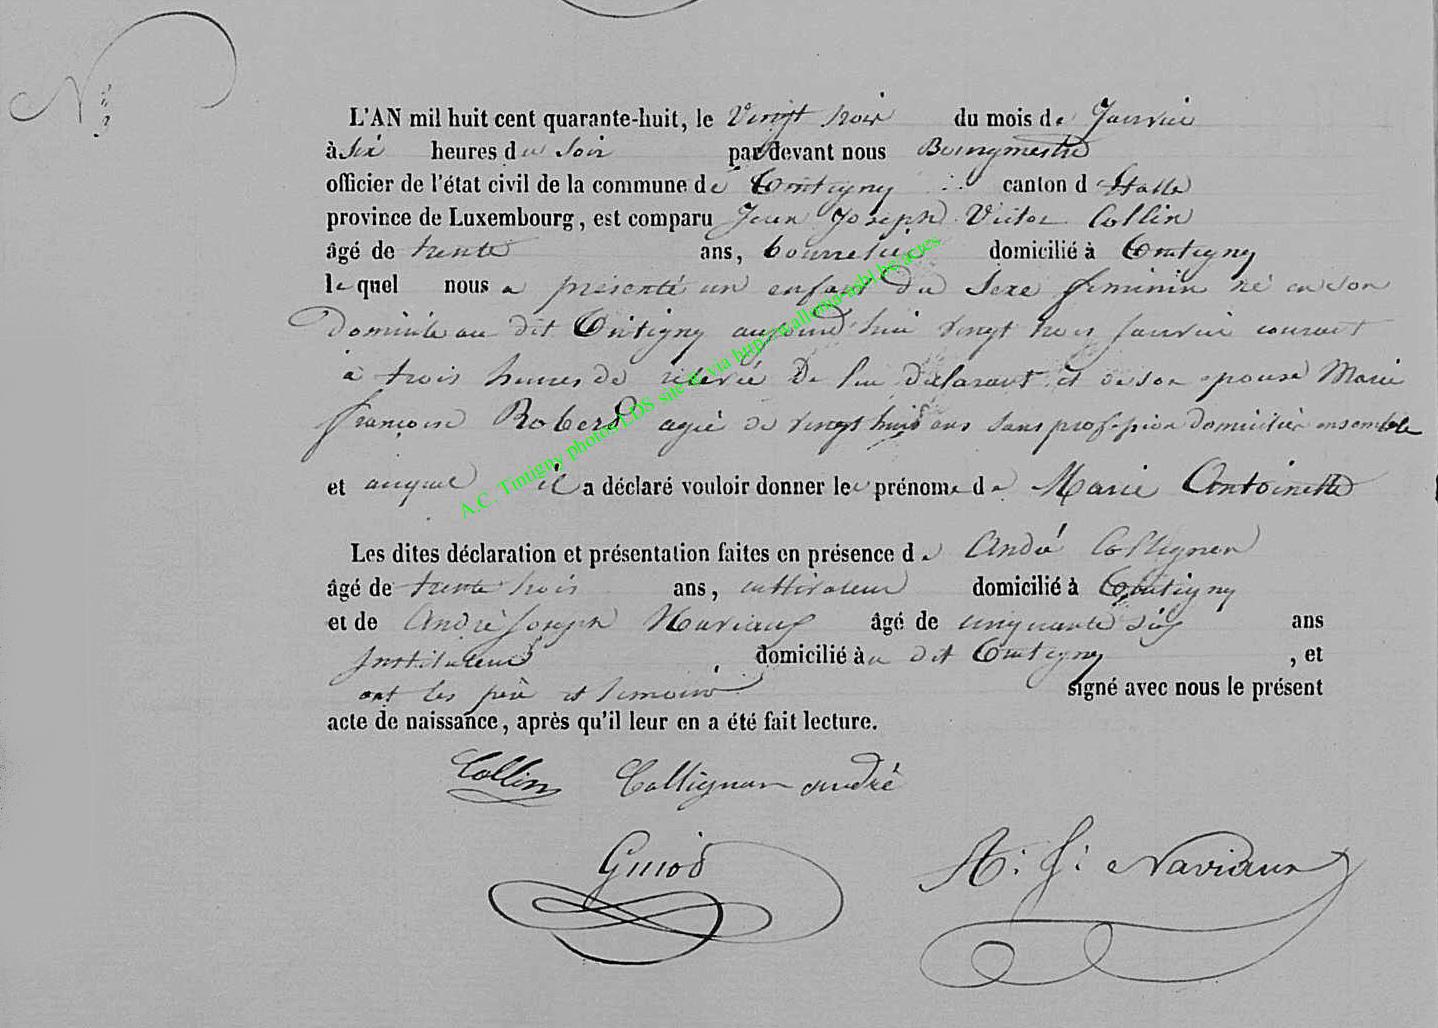 N° 3
L'AN mil huit cent quarante-huit, le Vingt trois du mois de Janvier
à Six heures du Soir par devant nous Bourgmestre
officier de l'état civil de la commune de Tintigny canton d'Etalle
province de Luxembourg, est comparu Jean Joseph Victor Collin
âgé de trente ans, bourrelier domicilié à Tintigny
lequel nous a présenté un enfant du Sexe feminin né en son
Domicile au dit Tintigny aujourd'hui vingt trois Janvier courant
à trois heures de relevée De lui déclarant et de son epouse Marie
françoise Robert agée de vingt huit ans sans profession Domiciliés ensemble
et auquel il a déclaré vouloir donner les prénoms de Marie Antoinette
Les dites déclaration et présentation faites en présence de André Collignon
âgé de trente trois ans, cultivateur domicilié à Tintigny
et de André Joseph Naviaux âgé de cinquante six ans
Instituteur, domicilié au dit Tintigny, et
ont les père et temoins signé avec nous le présent
acte de naissance, après qu'il leur en a été fait lecture.
Collin Collignon andré
Guiod A. J. Naviaux
A.C. Tintigny photos LDS site via http://wallonia-asbl.be/actes